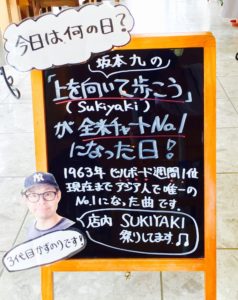 今日は何の日?
坂本九の
「上を向いて歩こう」
(Sukiyaki)
が全米チャートNo.1
になった日!
1963年ビルボード週間1位
現在までアジア人で唯一の
No.1になった曲です。
店内 SUKIYAKI
祭りしてます♫
3代目かずのりです!